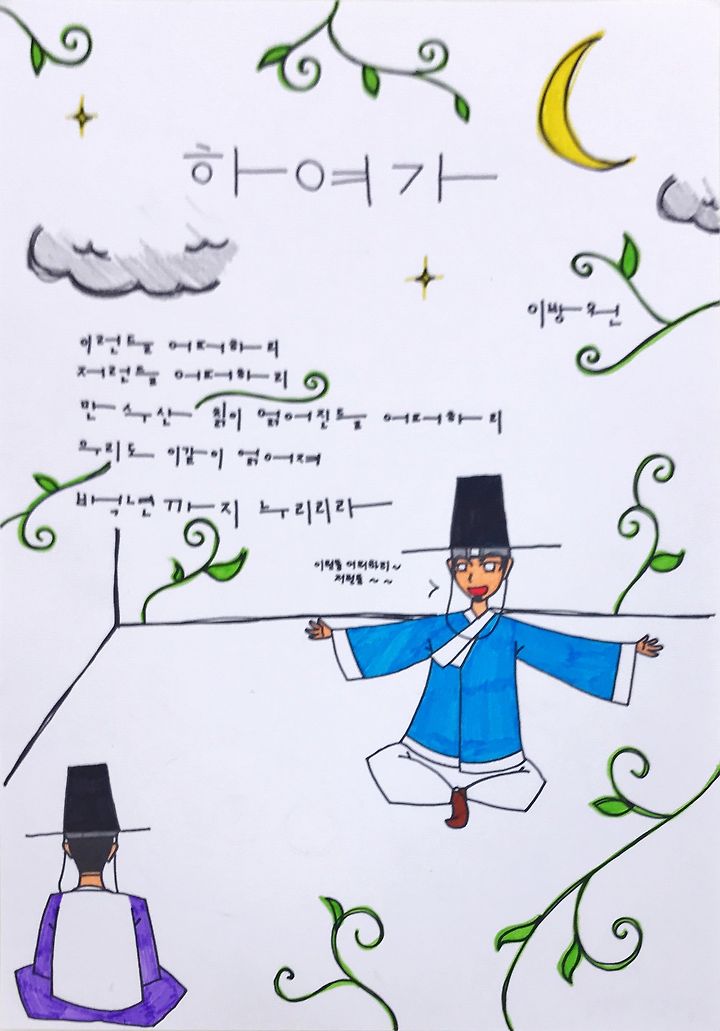 하여가
이방원
이런들 어떠하리
저런들 어떠하리
만수산 칡이 얽어진들 어떠하리
우리도 이같이 얽어져
백년까지 누리리라
이런들 어떠하리~
저런들 ~ ~